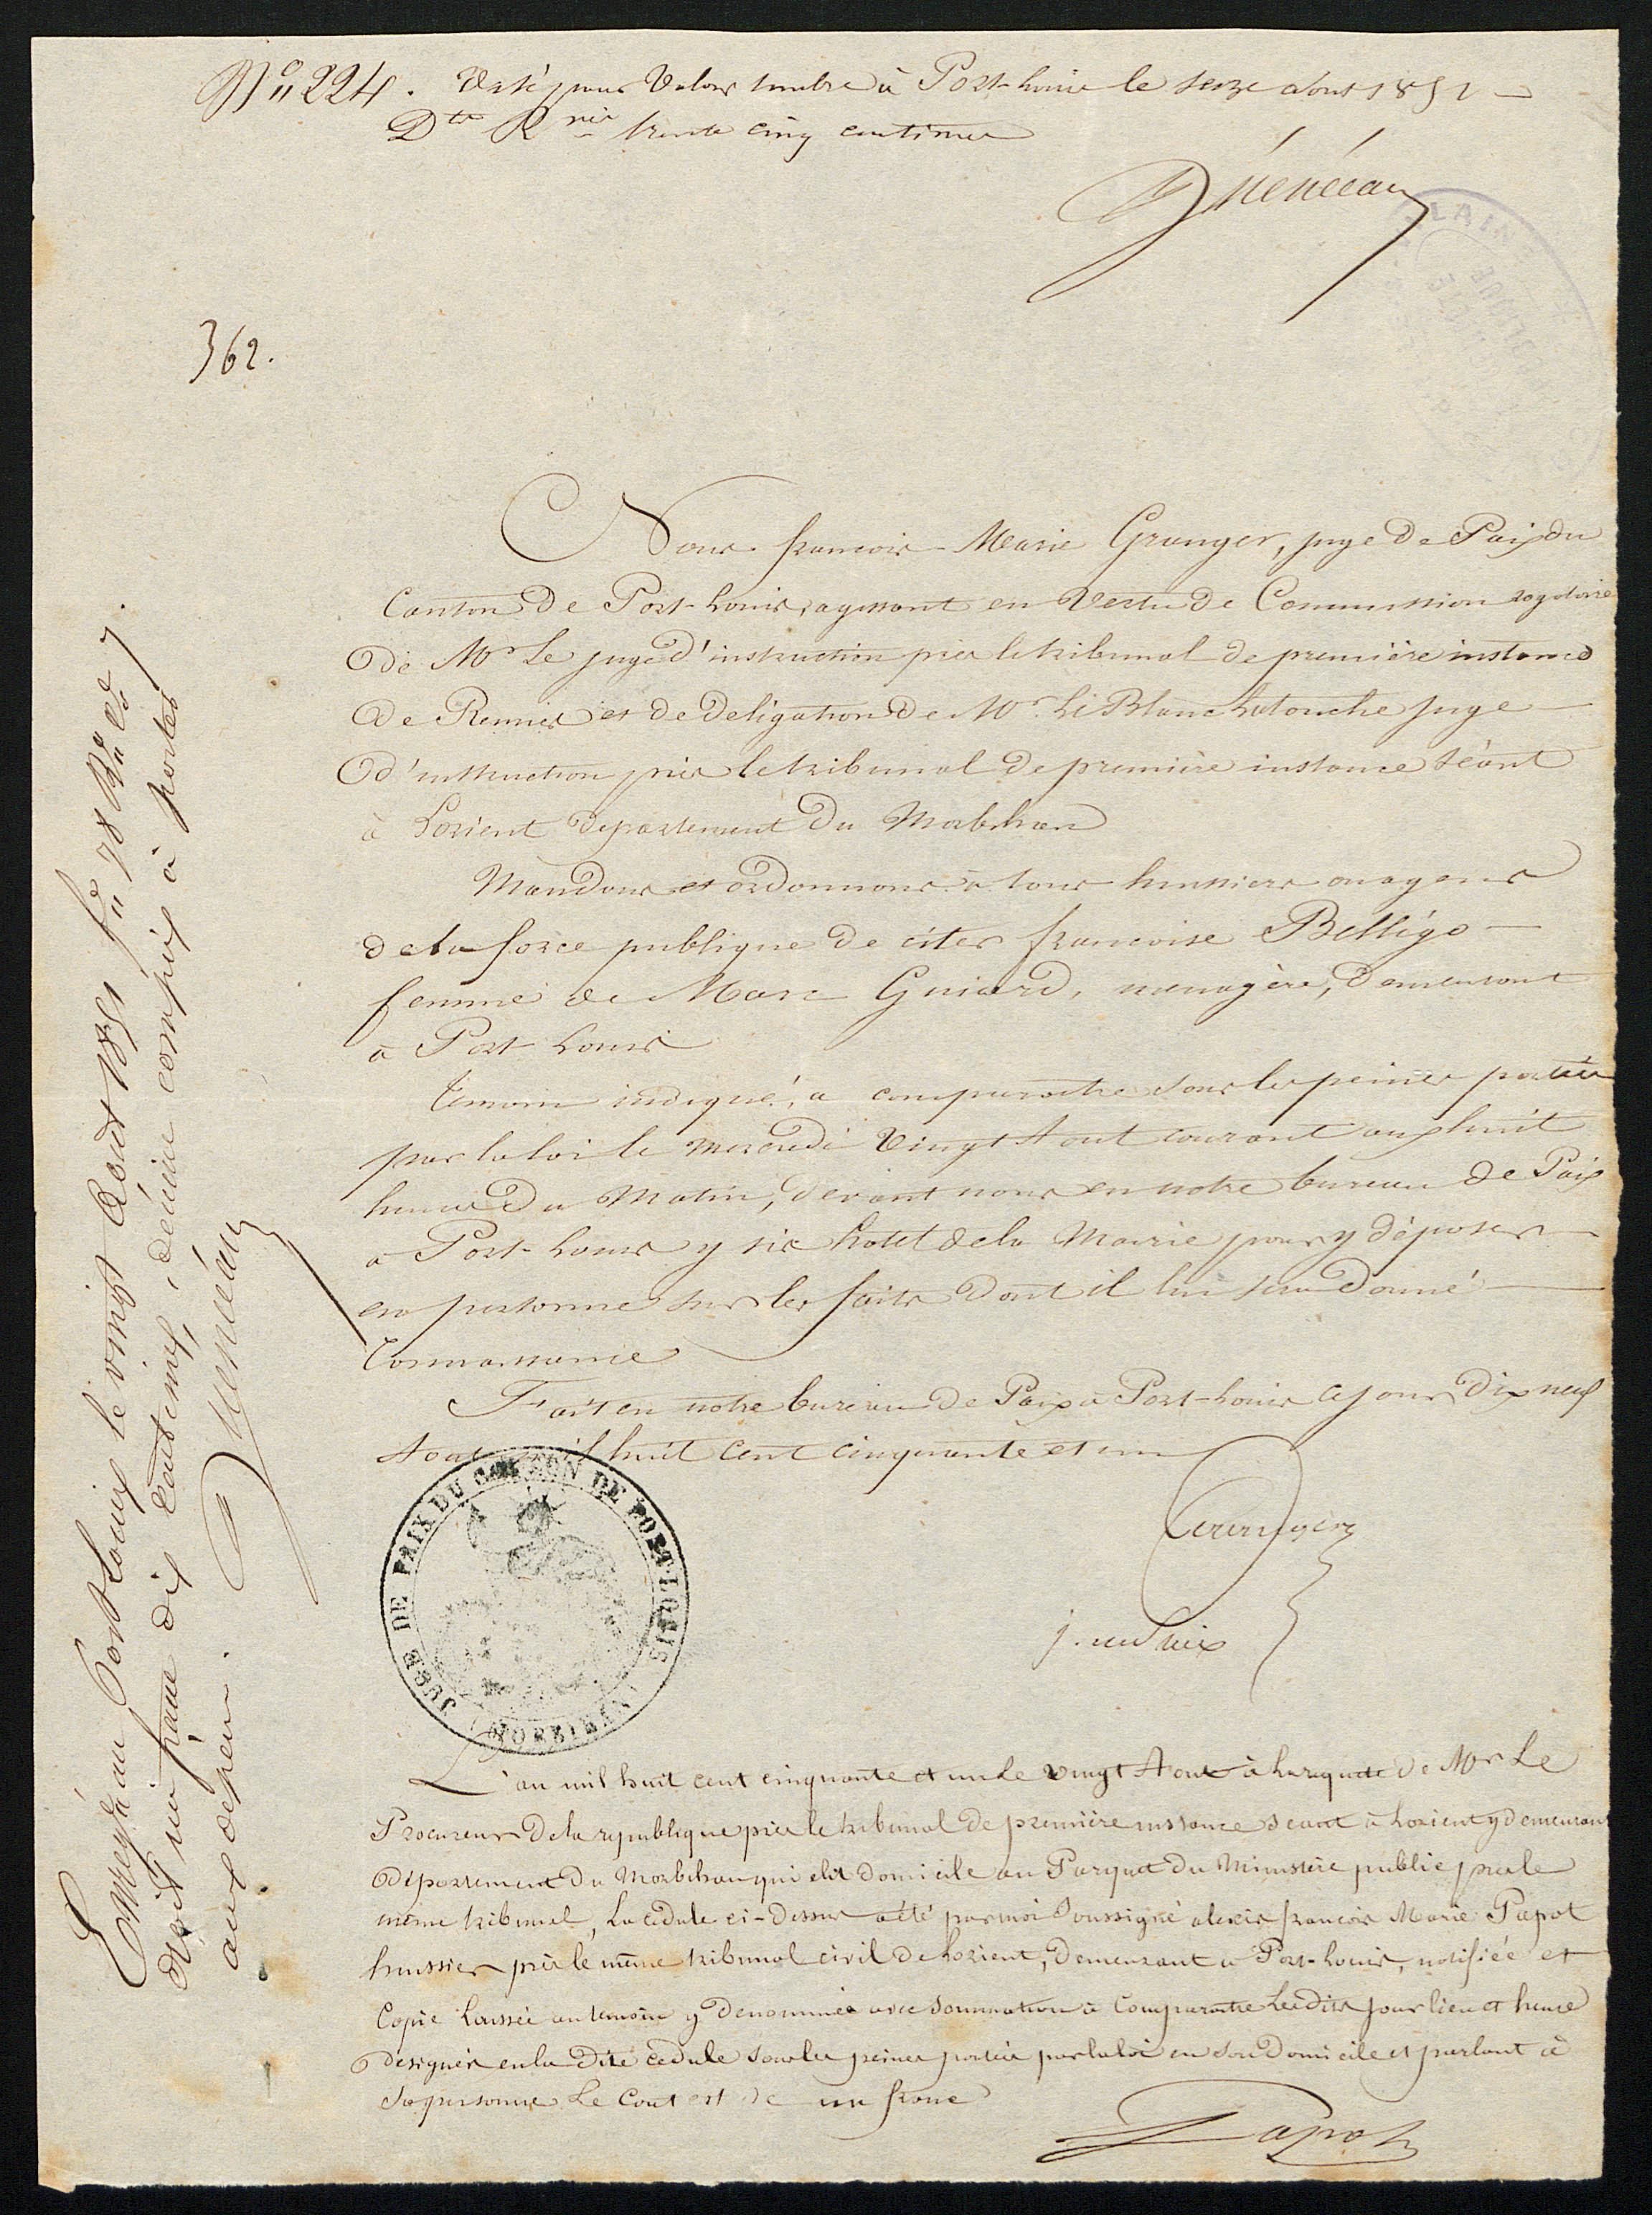 N° 224. Visé pour Valoir timbre à Port-Louis le seize aout 1851
Dte Rme trente cinq centimes
Guénéau
362.
Nous francois-Marie Granger, juge De Paix du
Canton De Port-Louis, agissant en Vertu De Commission rogatoire
De Mr Le juge d'instruction près le tribunal De première instance
De Rennes et De Deligation De Mr Le Blanc hatouche Juge
D'instruction près le tribunal De première instance séant
à Lorient Departement Du Morbihan
Mandons et ordonnons à tous huissiers ou agens
De la force publique De citer francoise Belligo
femme de Marc Guiard, menagère, Demeurant
à Port Louis
temoin indiqué, a comparoitre sous les peines portées
par la loi le Mercredi Vingt Aout courant aux huit
heures Du Matin, Devant nous en notre bureau De Paix
a Port-Louis y sis hotel De la Mairie pour y déposer
en personne sur les faits Dont il lui sera Donné
Connaissance
Fait en notre bureau De Paix à Port-Louis ce jour Dix neuf
Aout mil huit Cent Cinquante et un
Granger
j. de Paix
JUGE DE PAIX DU CANTON DE PORT-LOUIS
(MORBIHAN)
L'an mil huit cent cinquante et un Le vingt Aout à la requete De Mr Le
Procureur De la republique près le tribunal De première instance séant à Lorient y demeurant
Département Du Morbihan qui elit Domicile au Parquet Du Ministère public près le
même tribunal, La cédule ci-Dessus a été par moi Soussigné alexis francois Marie Papot
huissier près le même tribunal civil De Lorient, Demeurant a Port-Louis, notifiée et
Copie Laissée au temoin y Denommée avec Sommation à Comparaitre Lesdits jour lieu et heure
Designés en la Dite cédule Sous les peines portées par la loi en Son Domicile et parlant à
Sa personne Le Cout est De un franc
Papot
Enregtré au Port Louis le vingt Aout 1851 f° 78 R° Cse 7.
Reçut un franc dix centimes, décime compris à porter
aux dépens.
Guénéau